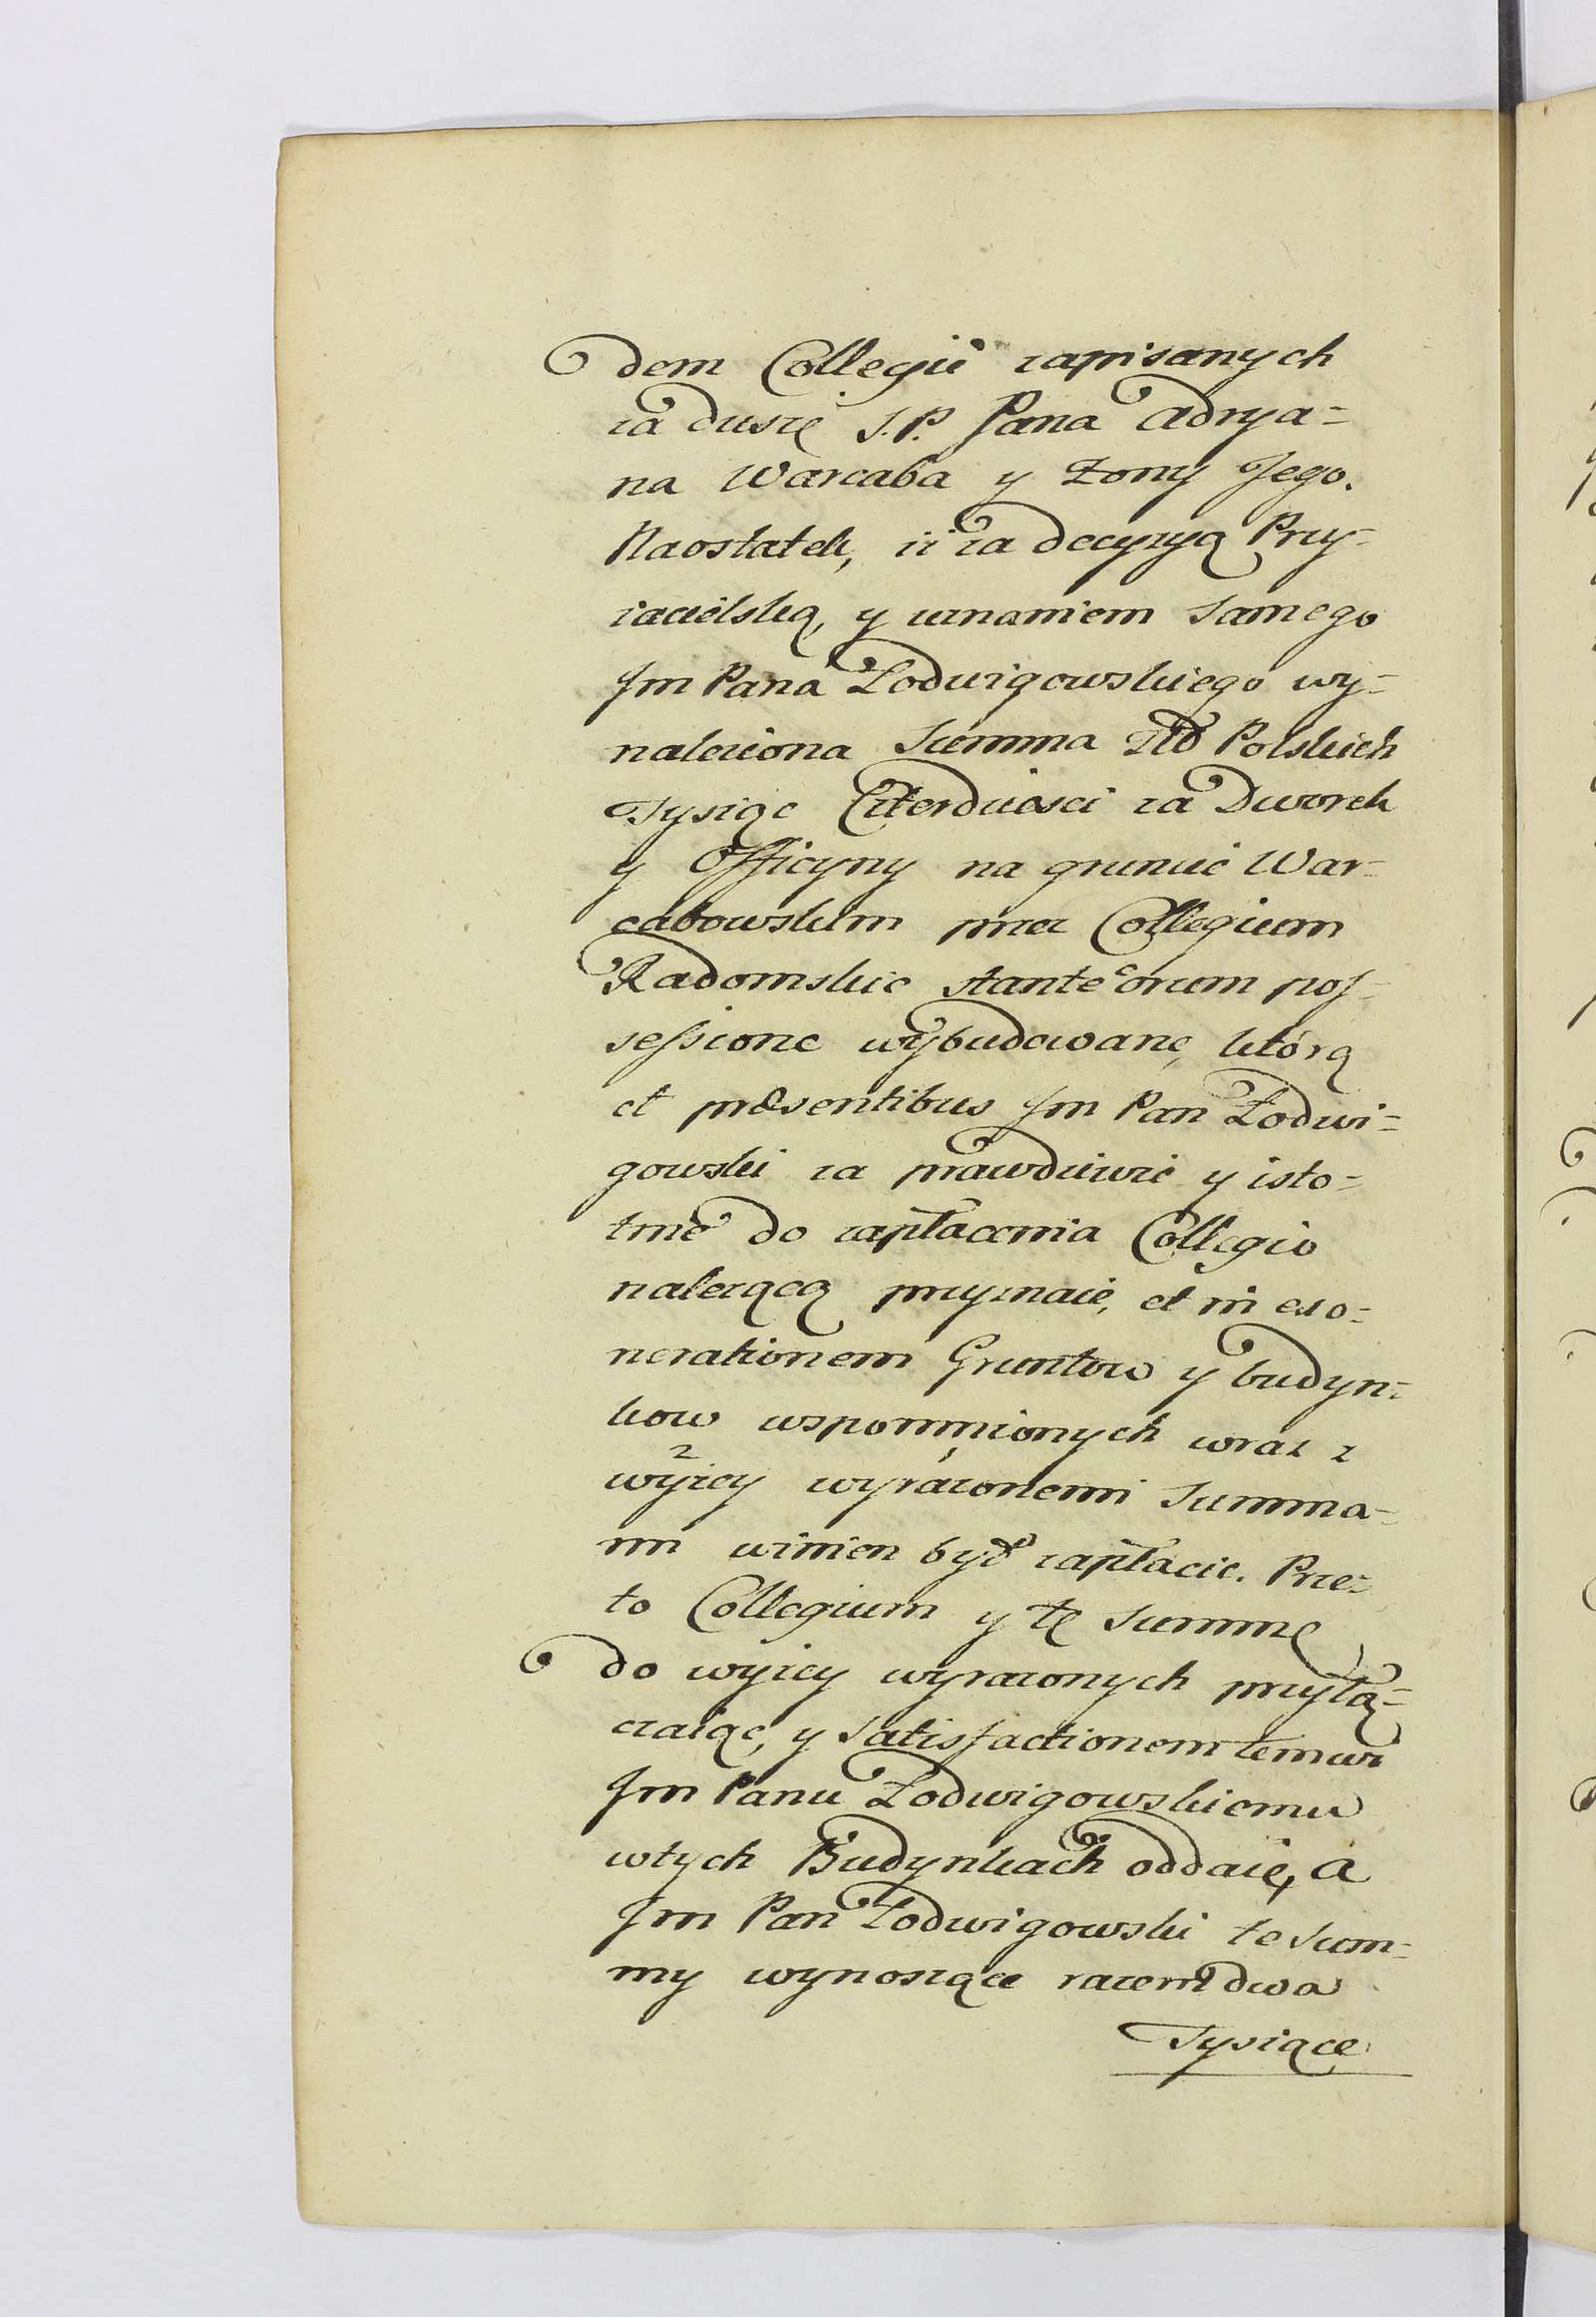 dem Collegii zapisanych
za duszę S. P. Pana Adrya=
na Warcaba y Zony Jego.
Naostatek, iż za decyzyą Przy=
iacielską, y uznaniem samego
Jm Pana Lodwigowskiego wy=
naleziona Summa Złð Polskich
Tysiąc Czterdzieści za Dworek
y Officyny na gruncie War=
cabowskim przez Collegium
Radomskie stante eorum pos=
sessione wybudowane, którą
et præsentibus Jm Pan Lodwi=
gowski za prawdziwie y isto=
tnie do zapłacenia Collegio
należącą przyznaie, et in exo=
nerationem Gruntow y budyn=
kow wspomnionych wraz z
wyżey wyrażonemi Summa=
mi winien być zapłacic. Prze=
to Collegium y tę Summę
do wyżey wyrażonych przyłą=
czaiąc, y Satisfactionem temuż
Jm Panu Lodwigowskiemu
wtych Budynkach oddaie, a
Jm Pan Lodwigowski te Sum=
my wynoszące razem dwa
Tysiące